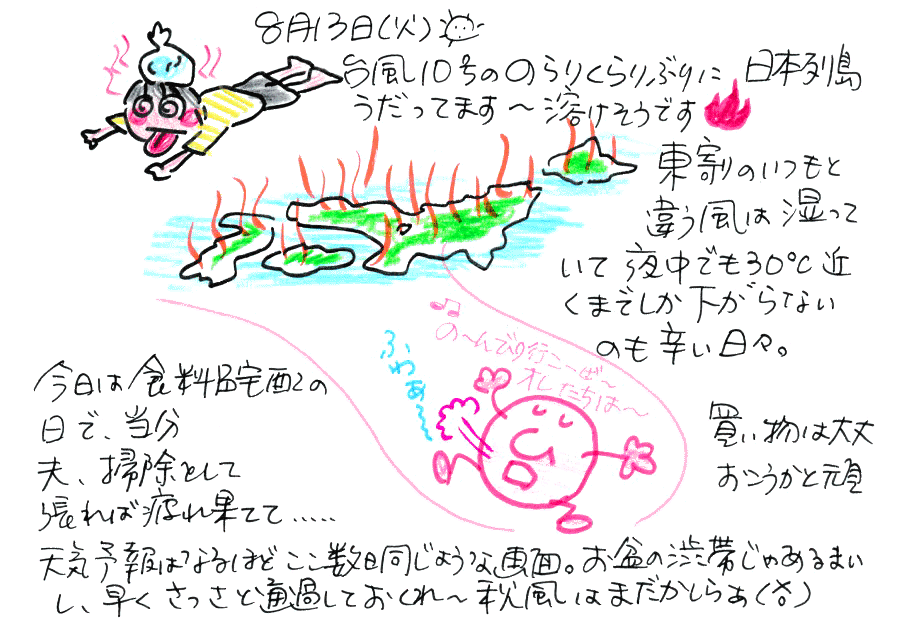 8月13日(火)
台風10号ののらりくらりぶりに 日本列島
うだってます〜溶けそうです
東寄りのいつもと
違う風は湿って
いて夜中でも30℃近
くまでしか下がらない
のも辛い日々。
の〜んびり行こーぜ〜
オレたちは〜
ふわぁ〜
今日は食料品宅配の
日で、当分
買い物は大丈
夫、掃除をして
おこうかと頑
張れば疲れ果てて.....
天気予報はなるほどここ数日同じような画面。お盆の渋滞じゃあるまい
し、早くさっさと通過しておくれ〜秋風はまだかしらぁ